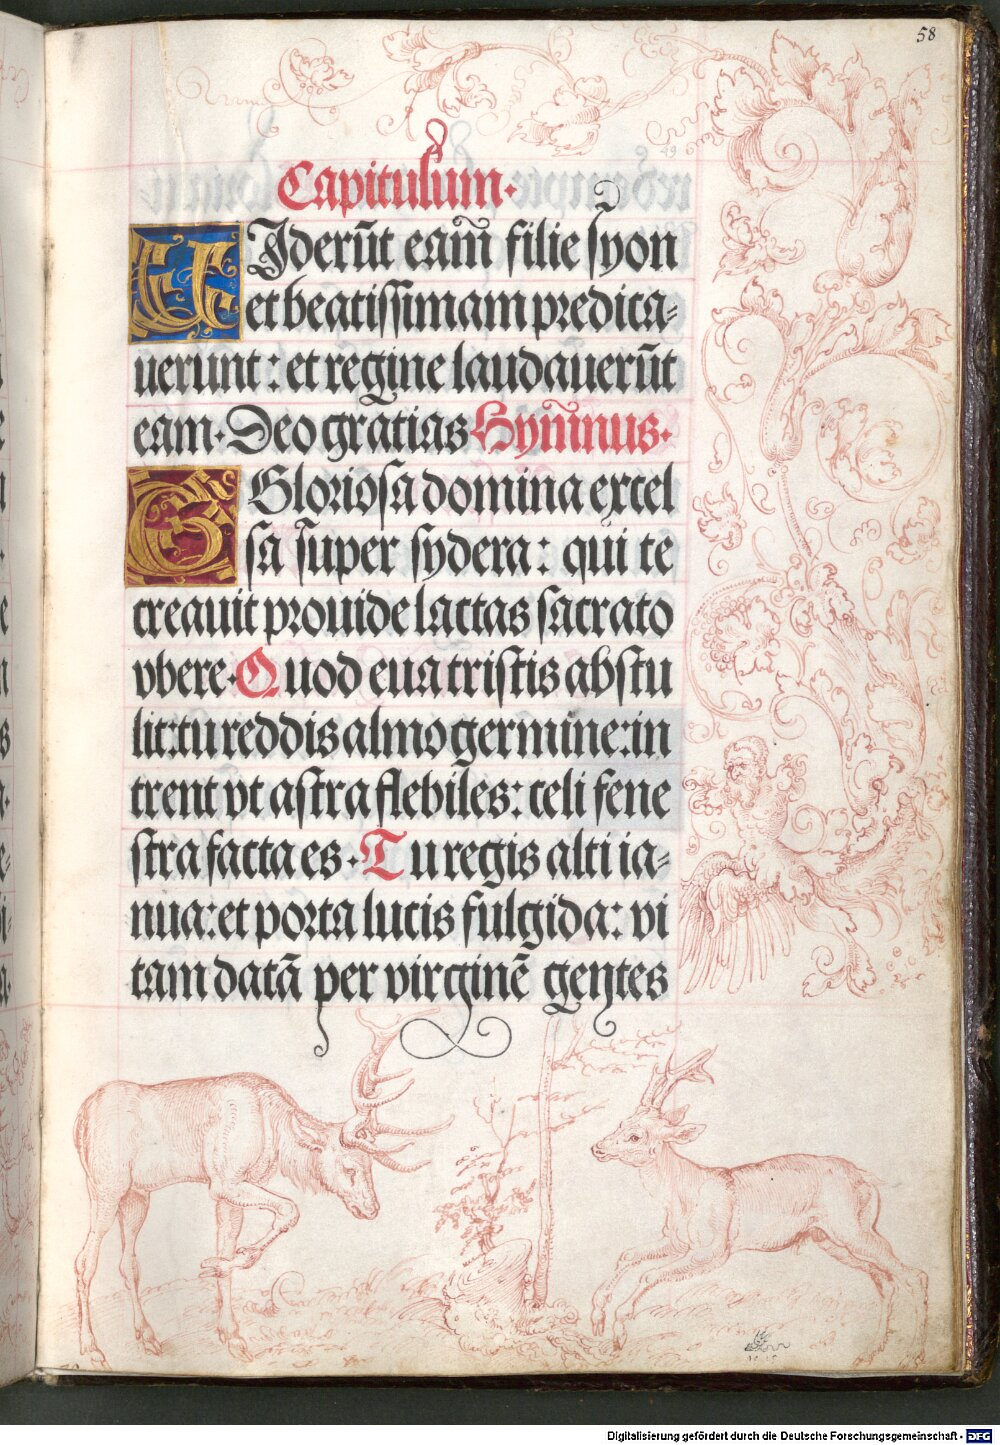 58
49
Capitulum.
VIderūt eam̄ filie syon
et beatissimam predica-
uerunt: et regine laudauerūt
eam. Deo gratias Hymnus.
O Gloriosa domina excel
sa super sydera: qui te
creauit prouide lactas sacrato
vbere. Quod eua tristis abstu
lit: tu reddis almo germine: in
trent vt astra flebiles: celi fene
stra facta es. Tu regis alti ia-
nua: et porta lucis fulgida: vi
tam datā per virginē gentes
Digitalisierung gefördert durch die Deutsche Forschungsgemeinschaft - DFG